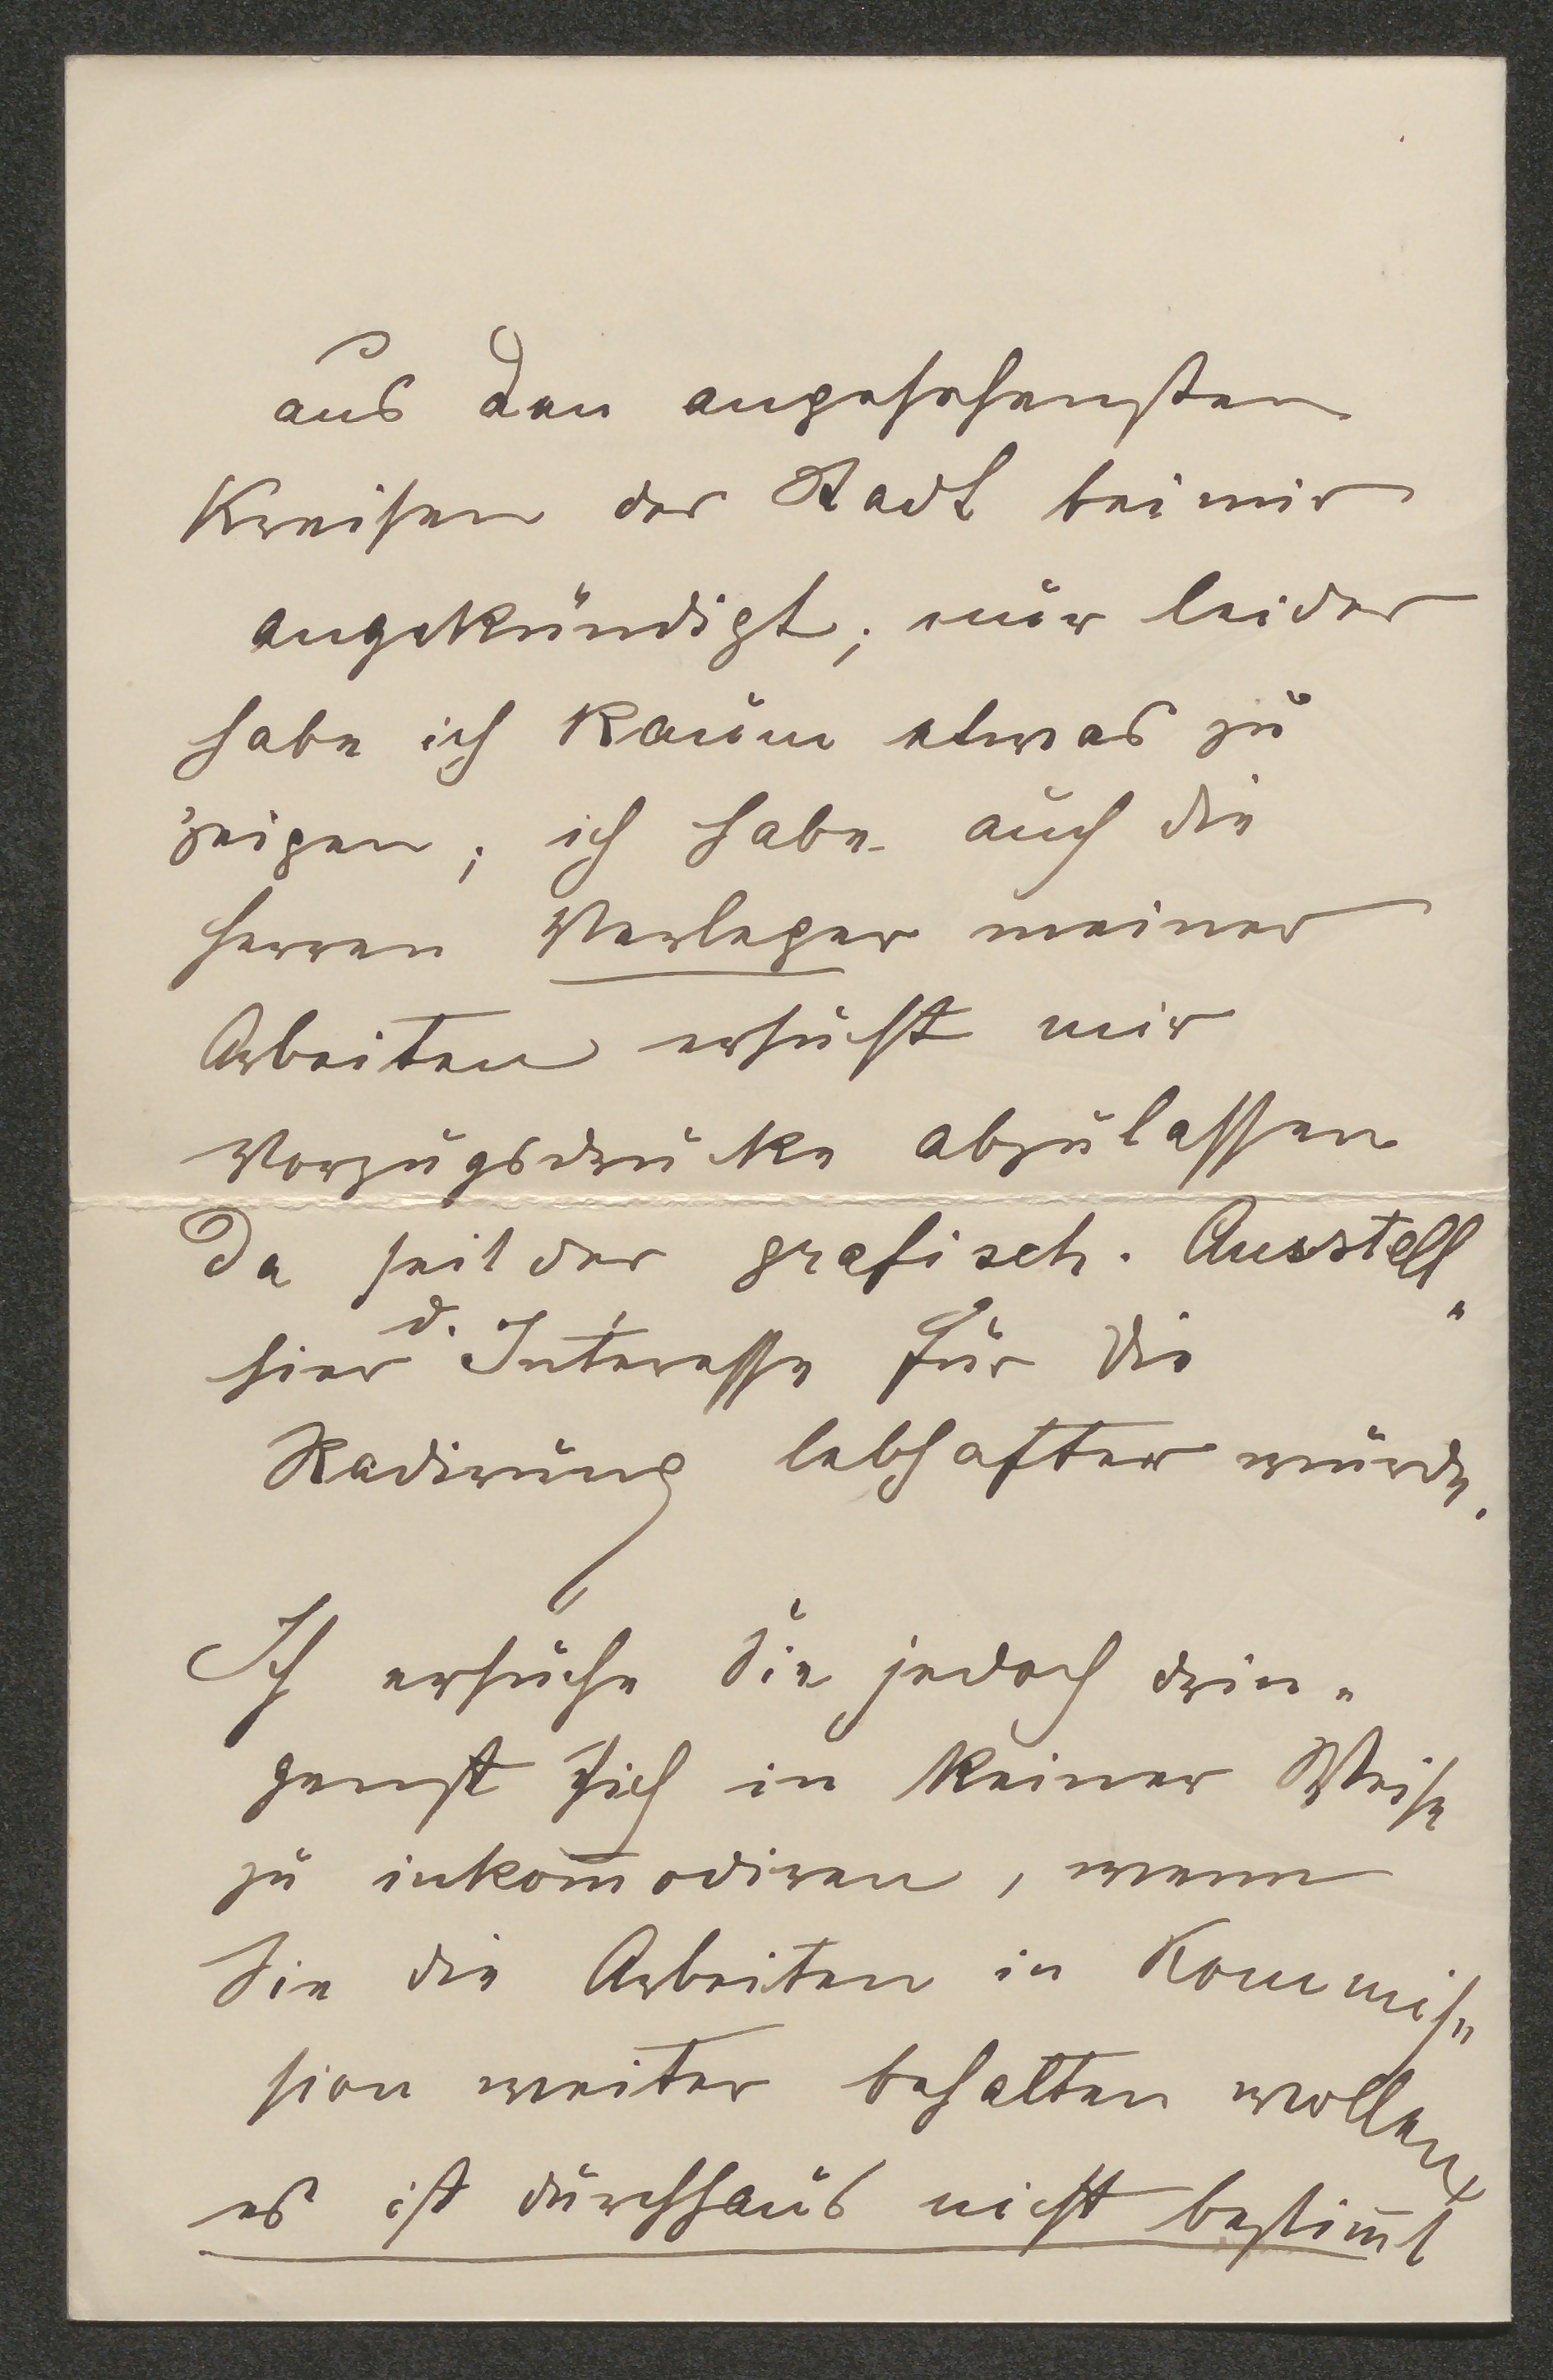 aus den angesehensten
Kreisen der Stadt bei mir
angekündigt; nur leider
habe ich kaum etwas zu
zeigen; ich habe auch die
Herren Verleger meiner
Arbeiten ersucht mir
Vorzugsdrucke abzulassen
Da seit der grafisch. Ausstell„
hier d. Interesse für die
Radirung lebhafter wurde.
Ich ersuche Sie jedoch drin„
genst sich in keiner Weise
zu inkom̄odiren, wenn
Sie die Arbeiten in Kommis„
sion weiter behalten wollen
es ist durchhaus nicht bestim̄t